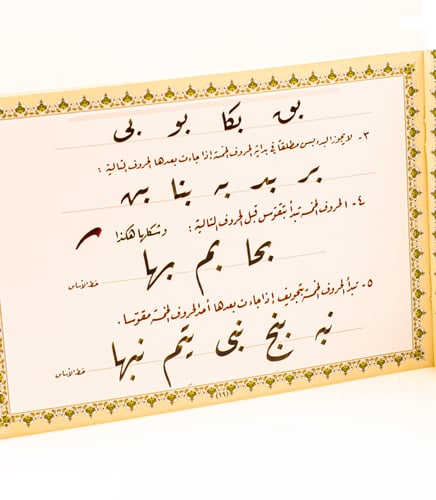 بق بكا بو بى
٣- لا يجوز البدء بسن مطلقاً في بداية الحروف الخمسة إذا جاءت بعدها الحروف التالية :
بر بد به بنا بن
٤- الحروف الخمسة تبدأ بتقوّس قبل الحروف التالية : وشكلها هكذا
بحا بم بها خط الأساس
٥- تبدأ الحروف الخمسة بتجويف إذا جاءت بعدها أحد الحروف الخمسة مقوّسا .
نبه بنج نبى يتم نبها خط الأساس
(١٩)